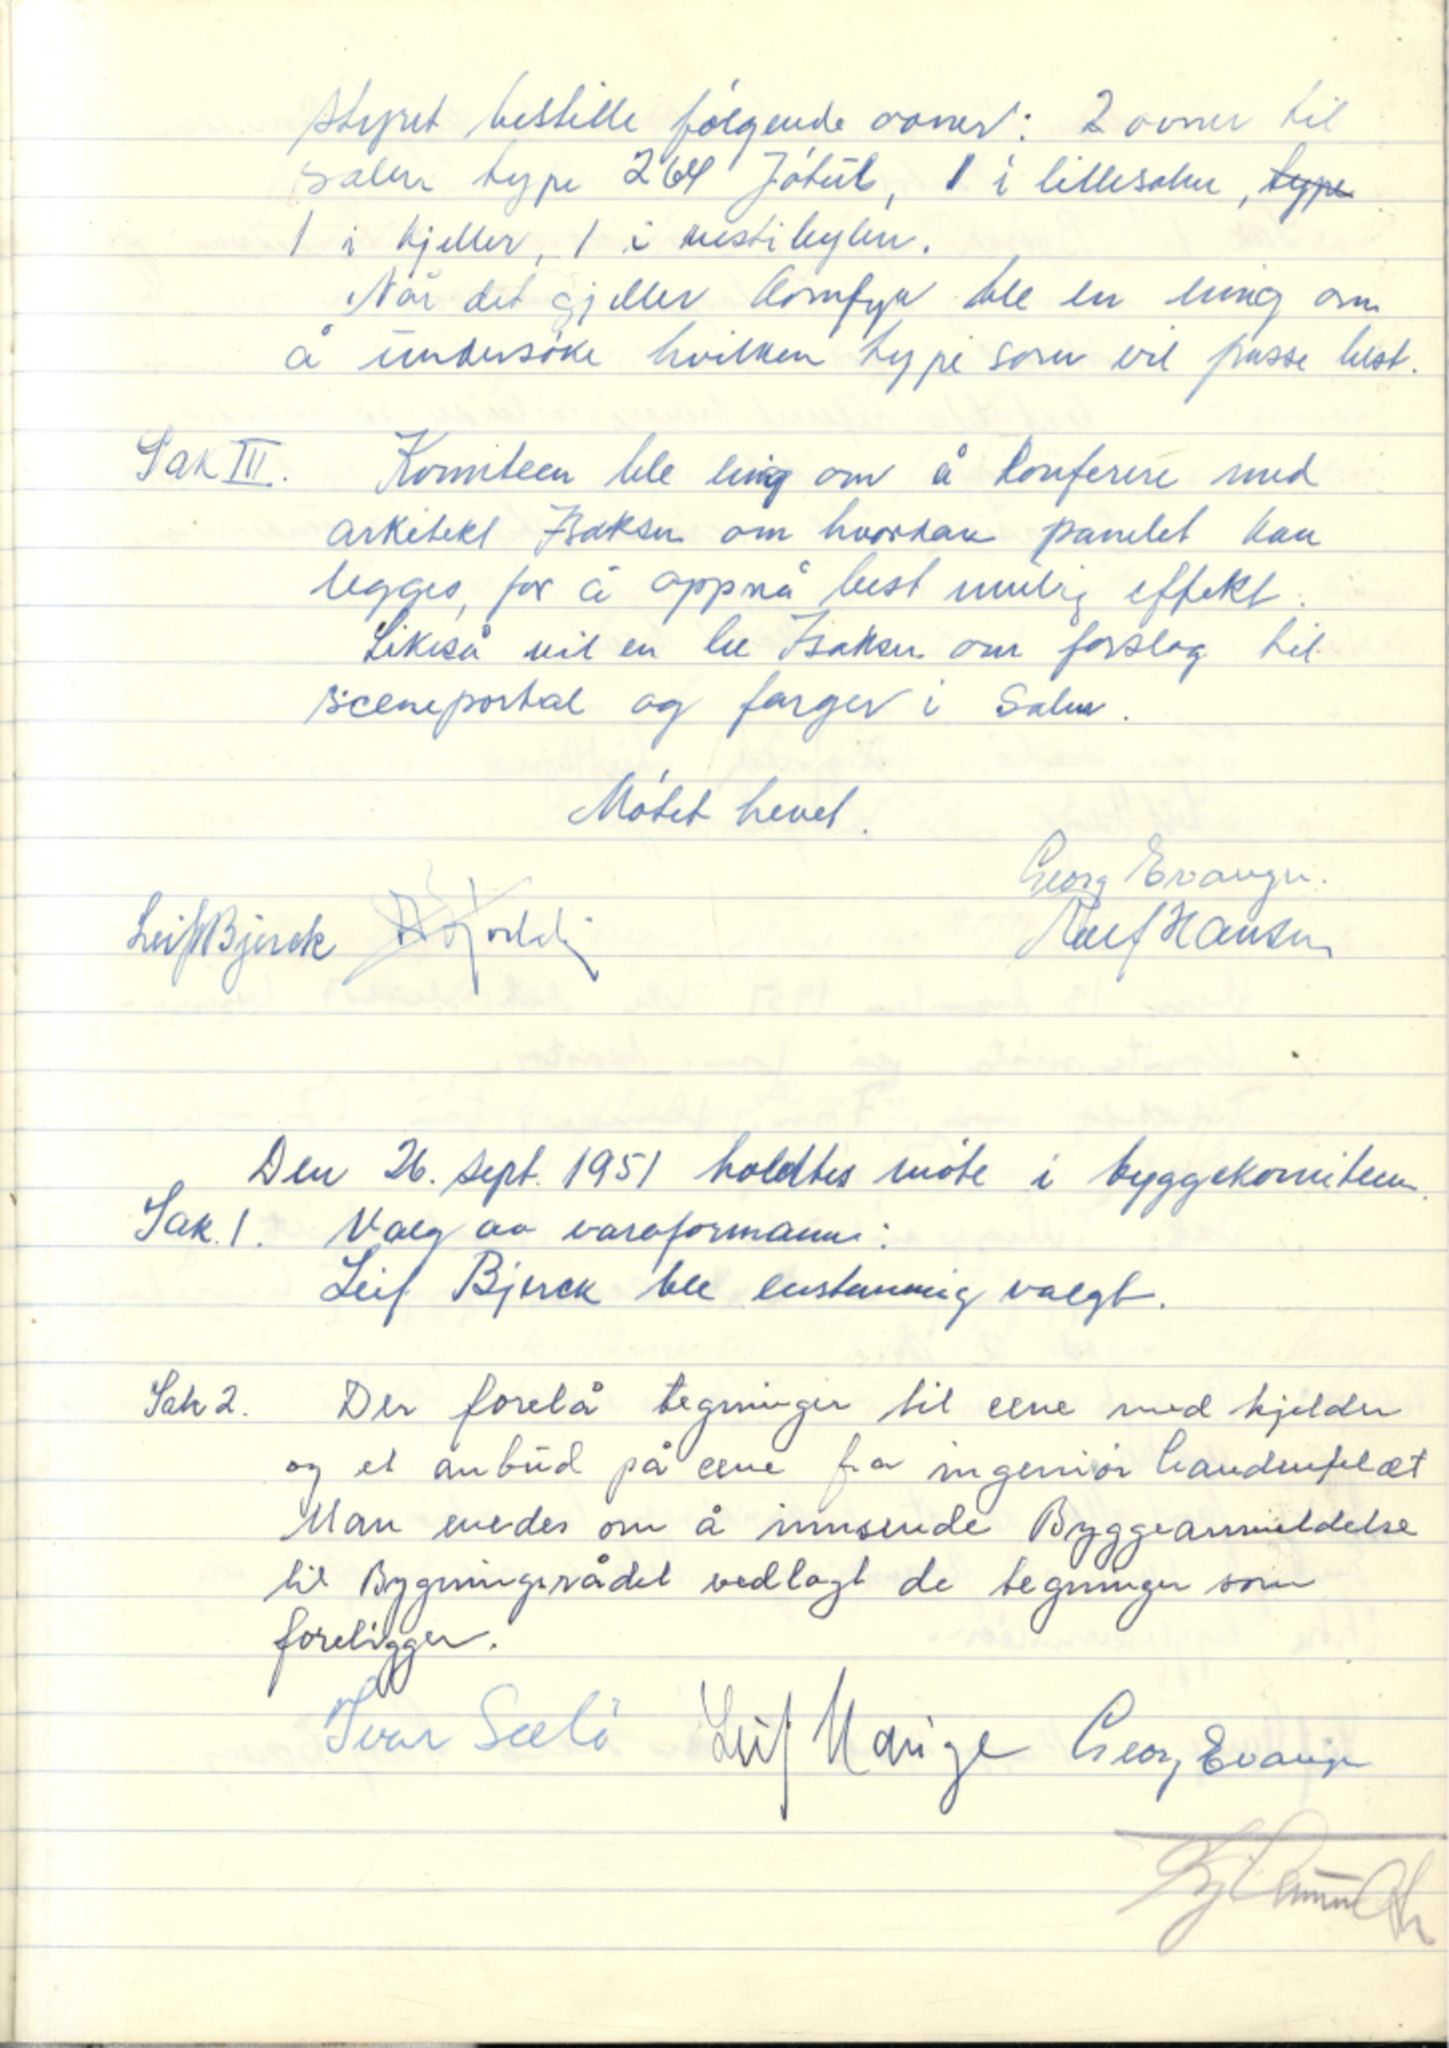 styret bestille følgende ovner: 2 ovner til
salen type 264 Jøtul, 1 i lillesalen, type
1 i kjeller, 1 i vestibylen.
Når det gjeller komfyr ble en enig om
å undersøke hvilken type som vil passe best.
Sak III. Komiteen ble enig om å konferere med
arkitekt Isaksen om hvordan panelet kan
legges, for å oppnå best mulig effekt.
Likeså vil en be Isaksen om forslag til
sceneportal og farger i Salen.
Møtet hevet.
Georg Evangen.
Leif Bjerck
Hansen
Den 26. sept. 1951 holdtes møte i byggekomiteen.
Sak. 1. Valg av varaformann:
Leif Bjerck ble enstemmig valgt.
Sak 2. Der forelå tegninger til scene med kjelder
og et anbud på scene fra ingeniør
Man enedes om å innsende Byggeanmeldelse
til Bygningsrådet vedlagt de tegninger som
foreligger.
Ivar Sælø Leif Georg Evangen